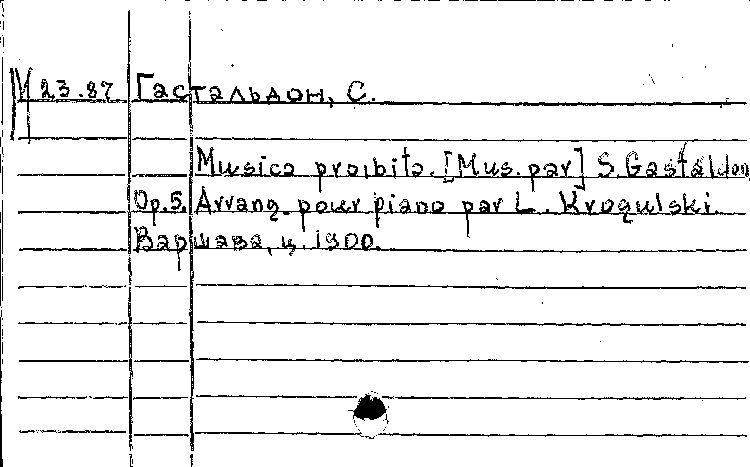 М 23.87 Гастальдон, С.
Musica proibita. [Mus. par] S. Gastaldon
Op.5. Arrang. pour piano par L. Krogulski.
Варшава, ц. 1900.